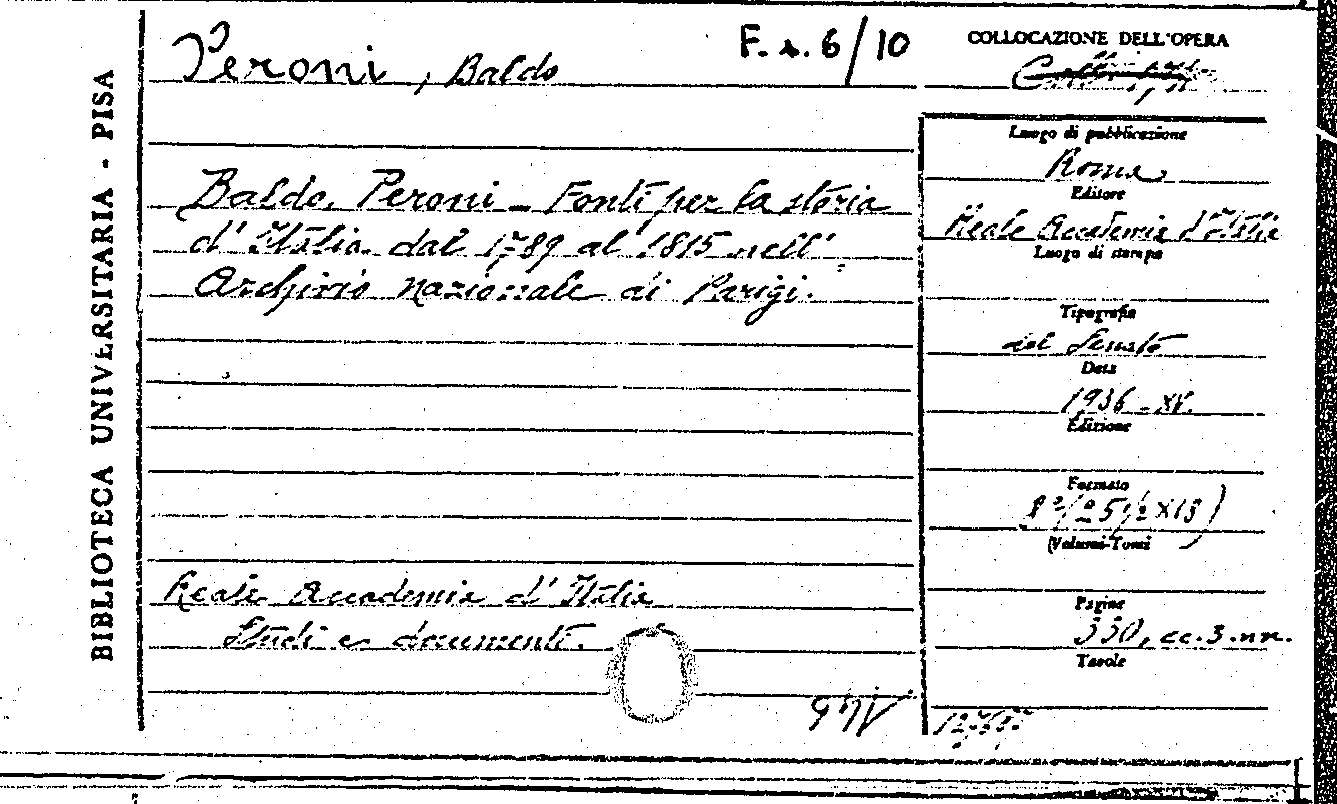 BIBLIOTECA UNIVERSITARIA - PISA
Peroni, Baldo
F. s. 6/10
COLLOCAZIONE DELL'OPERA
Baldo Peroni - Fonti per la storia
d'Italia dal 1789 al 1815 nell'
Archivio nazionale di Parigi.
Reale Accademia d'Italia
Studi e documenti.
Luogo di pubblicazione
Roma
Editore
Reale Accademia d'Italia
Luogo di stampa
Tipografia
del Senato
Data
1936 - XV.
Edizione
Formato
8º (25½ x 18)
(Volumi-Tomi
Pagine
330, cc. 3. nn.
Tavole